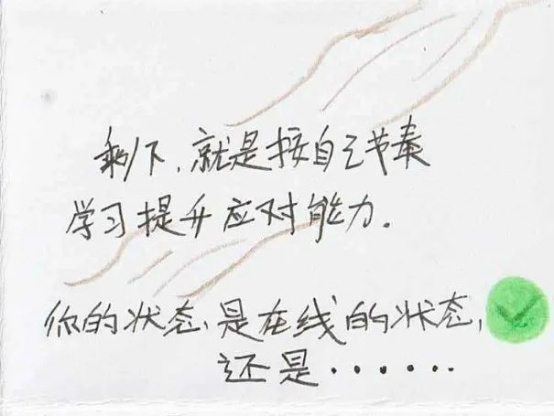 剩下,就是按自己节奏
学习提升应对能力.
你的状态,是在线的状态,
还是······